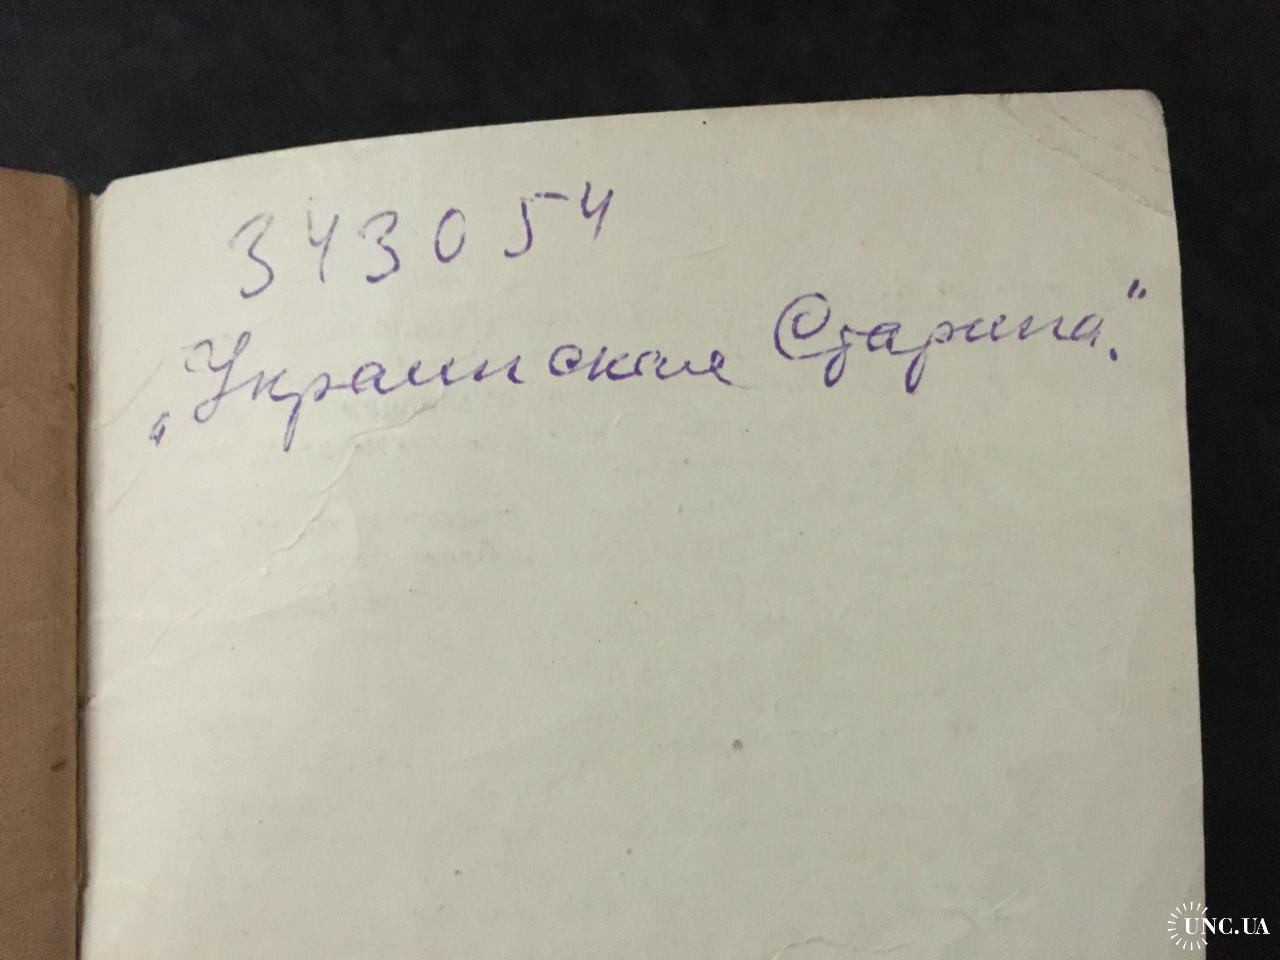 343054
„Украинская Старина."
UNC.UA